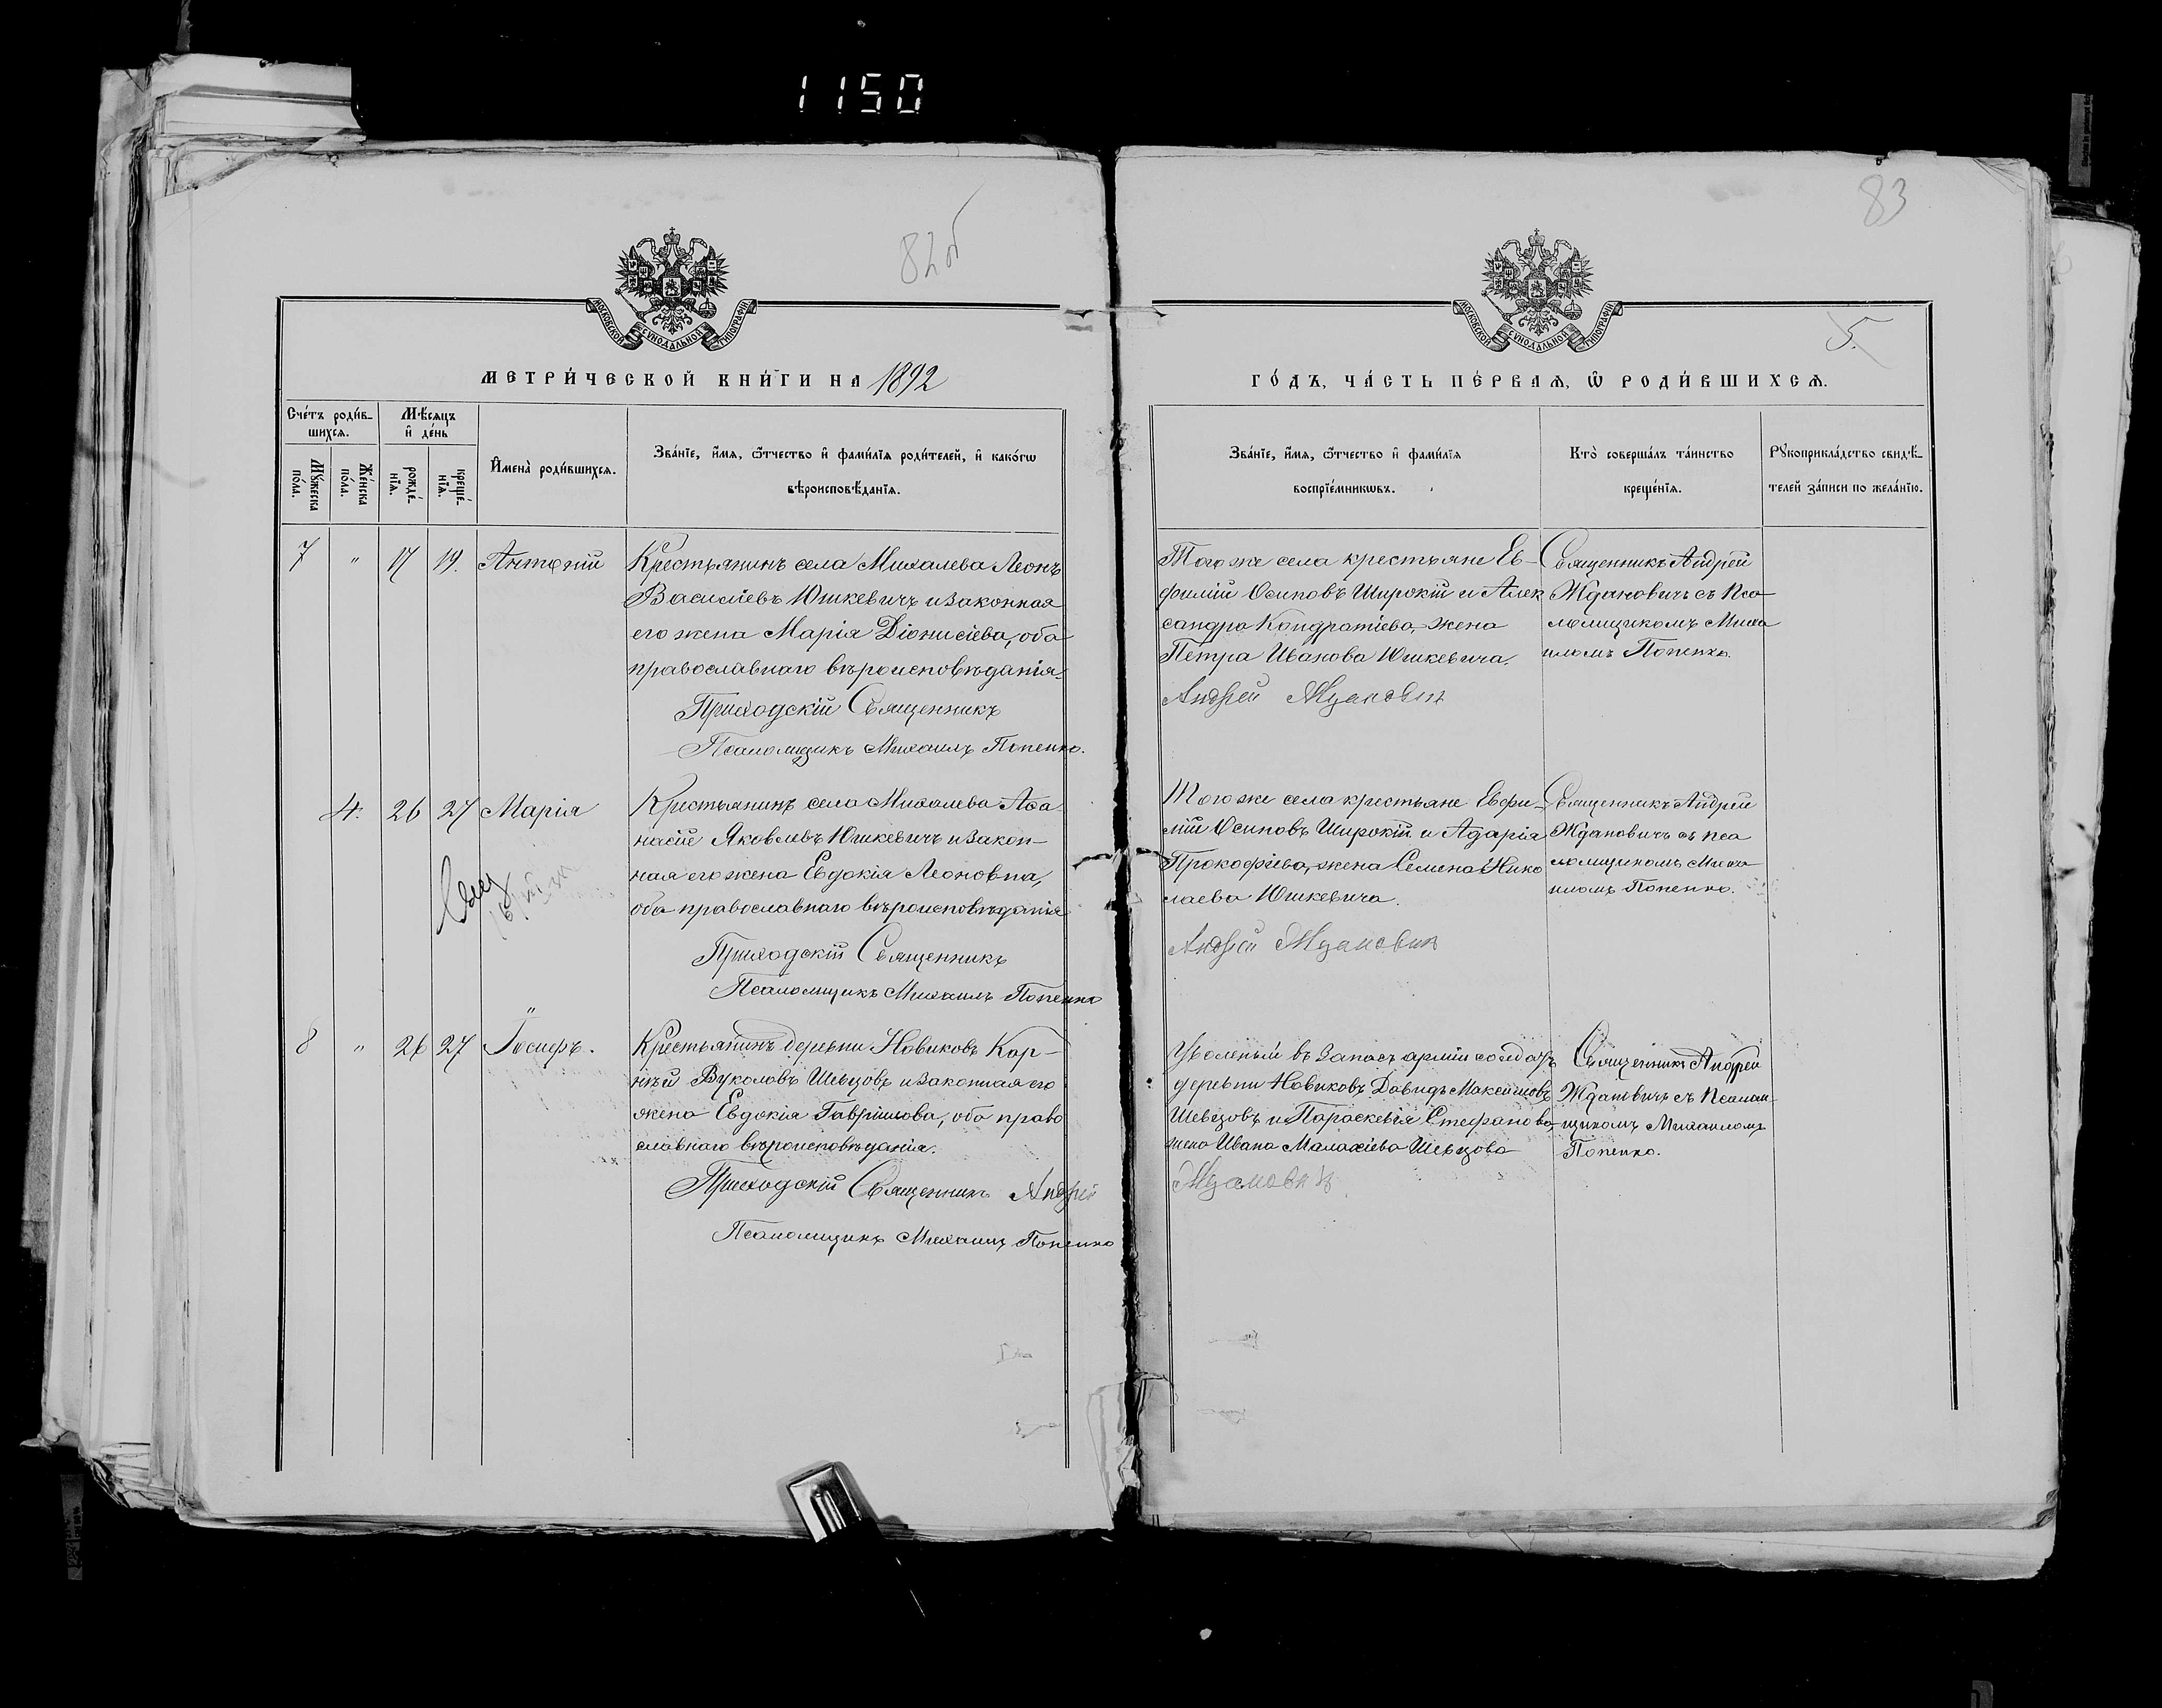 1150
82об
83
5.
МОСКОВСКОЙ СѴНОДАЛЬНОЙ ТИПОГРАФІИ
МОСКОВСКОЙ СѴНОДАЛЬНОЙ ТИПОГРАФІИ
МЕТРИ́ЧЕСКОЙ КНИ́ГИ НА 1892
ГО́ДЪ, ЧА́СТЬ ПЕ́РВАѦ, Ѿ РОДИ́ВШИХСѦ.
Сче́тъ роди́в-
шихсѧ.
Мѣсѧцъ
и҆ де́нь
Мꙋ́жеска
по́ла.
Же́нска
по́ла.
рожде́-
нїѧ.
креще́-
нїѧ.
И҆мена̀ роди́вшихсѧ.
Зва́нїе, и҆́мѧ, ѻ҆́тчество и҆ фами́лїѧ роди́телей, и҆ како́гѡ
вѣроисповѣ́данїѧ.
Зва́нїе, и҆́мѧ, ѻ҆́тчество и҆ фами́лїѧ
воспрїе́мникѡвъ.
Кто̀ соверша́лъ та́инство
креще́нїѧ.
Рꙋкоприкла́дство свидѣ́-
телей за́писи по жела́нїю.
7 " 17 19. Антоній
Крестьянинъ села Михалева Леонъ
Василіевъ Юшкевичъ и законная
его жена Марія Діонисіева, оба
православнаго вѣроисповѣданія.
Приходскій Священникъ
Псаломщикъ Михаилъ Попенко.
Того же села крестьяне Ев-
фимій Осиповъ Широкій и Алек
сандра Кондратіева, жена
Петра Иванова Юшкевича.
Андрей Ждановичъ
Священникъ Андрей
Ждановичъ съ Пса-
ломщикомъ Миха
иломъ Попенко.
4. 26 27 Марія
Крестьянинъ села Михалева Аѳа
насій Яковлевъ Юшкевичъ и закон-
ная его жена Евдокія Леоновна,
оба православнаго вѣроисповѣданія
Приходскій Священникъ
Псаломщикъ Михаилъ Попенко
Того же села крестьяне Евфи-
мій Осиповъ Широкій и Адарія
Прокофіева, жена Семена Нико
лаева Юшкевича.
Андрей Ждановичъ
Священникъ Андрей
Ждановичъ съ пса
ломщикомъ Миха
иломъ Попенко.
8 " 26 27 Іосифъ.
Крестьянинъ деревни Новиковъ Кор-
нѣй Вуколовъ Шевцовъ и законная его
жена Евдокія Гавріилова, оба право
славнаго вѣроисповѣданія.
Приходскій Священникъ Андрей
Псаломщикъ Михаилъ Попенко
Уволеный въ запасъ арміи солдатъ
деревни Новиковъ Давидъ Максимовъ
Шевцовъ и Параскевія Стефанова,
жена Ивана Малахіева Шевцова
Ждановичъ
Священникъ Андрей
Ждановичъ съ Псалом-
щикомъ Михаиломъ
Попенко.